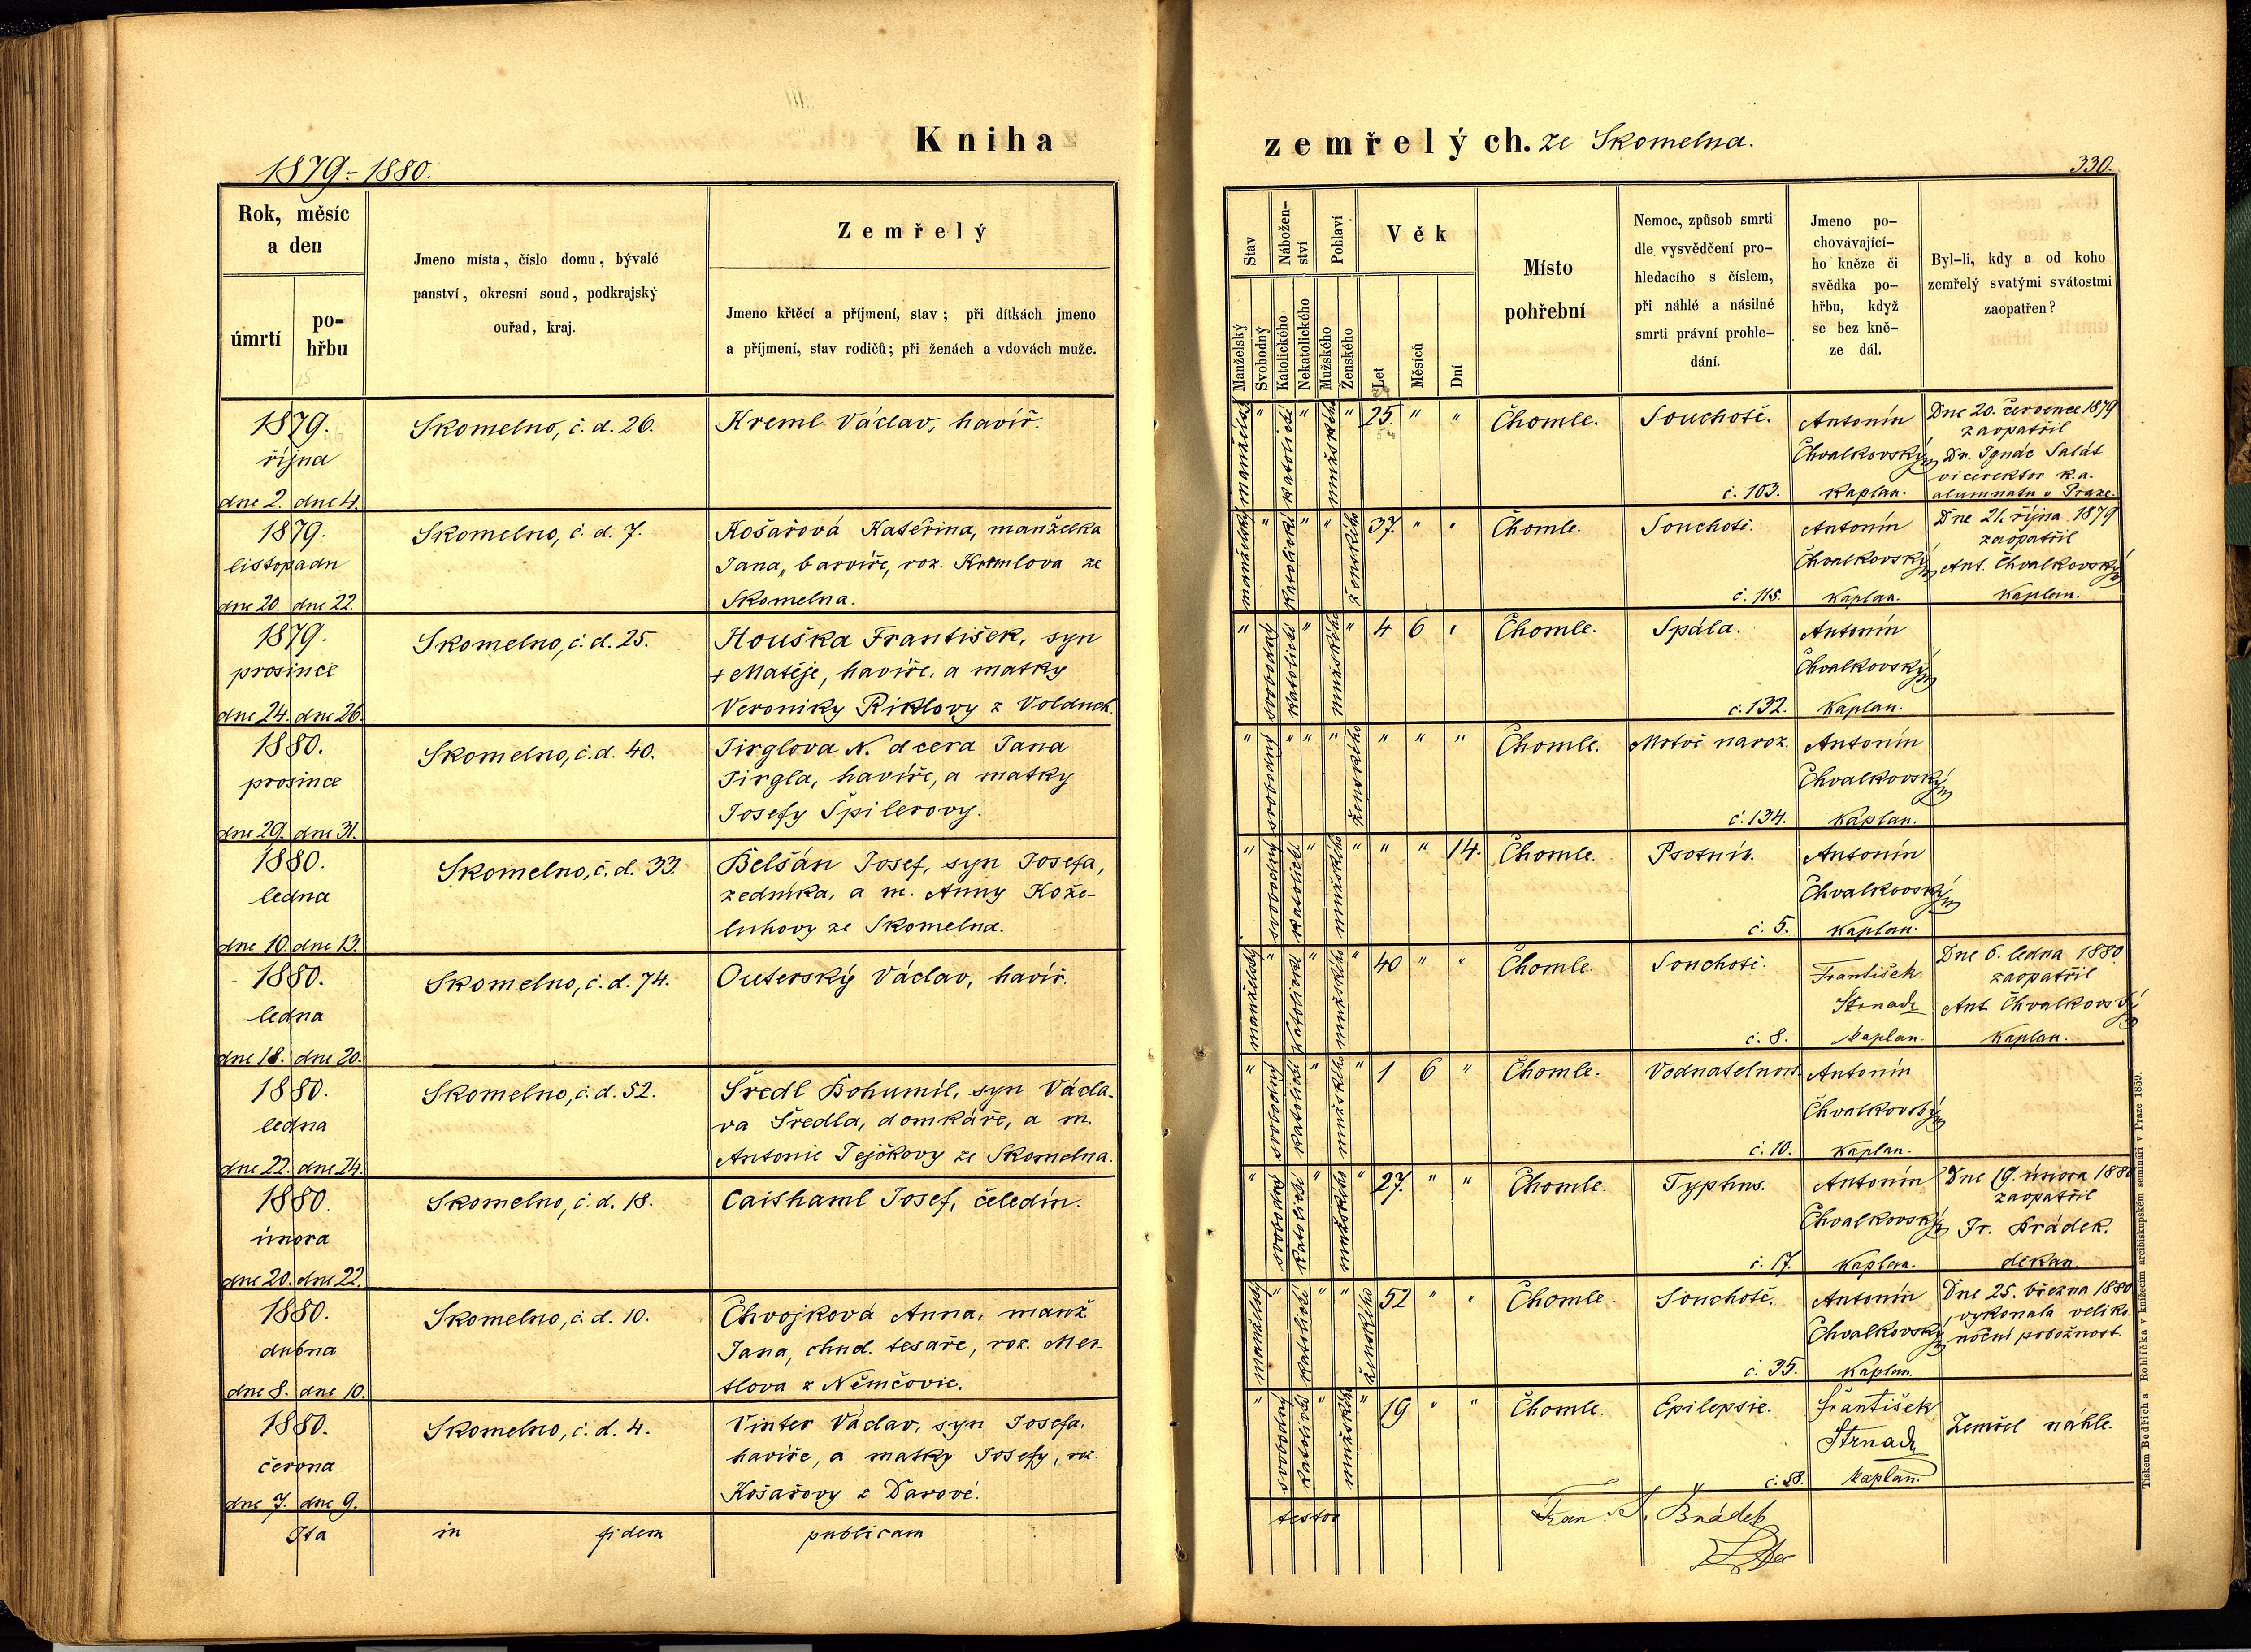 Kniha
zemřelých. ze Skomelna.
1879-1880.
330.
Rok, měsíc
a den
úmrtí
po-
hřbu
Jmeno místa, číslo domu, bývalé
panství, okresní soud, podkrajský
ouřad, kraj.
Zemřelý
Jmeno křtěcí a příjmení, stav; při dítkách jmeno
a příjmení, stav rodičů; při ženách a vdovách muže.
Stav
Nábožen-
ství
Pohlaví
Věk
Manželský
Svobodný
Katolického
Nekatolického
Mužského
Ženského
Let
Měsíců
Dní
Místo
pohřební
Nemoc, způsob smrti
dle vysvědčení pro-
hledacího s číslem,
při náhlé a násilné
smrti právní prohle-
dání.
Jmeno po-
chovávající-
ho kněze či
svědka po-
hřbu, když
se bez kně-
ze dál.
Byl-li, kdy a od koho
zemřelý svatými svátostmi
zaopatřen?
1879.
října
dne 2. dne 4.
Skomelno, č. d. 26.
Kreml Václav, havíř.
manželský " katolické " mužského " 25. " "
Chomle.
Souchotě.
č. 103.
Antonín
Chvalkovský
kaplan.
Dne 20. července 1879
zaopatřil
Dr. Ignác Salát
vicerektor k. a.
alumnatu v Praze.
1879.
listopadu
dne 20. dne 22.
Skomelno, č. d. 7.
Košařová Kateřina, manželka
Jana, barvíře, roz. Kremlova ze
Skomelna.
manželský " katolické " " ženského 37. " "
Chomle.
Souchotě.
č. 115.
Antonín
Chvalkovský
kaplan.
Dne 21. října 1879
zaopatřil
Ant. Chvalkovský
kaplan.
1879.
prosince
dne 24. dne 26.
Skomelno, č. d. 25.
Houška František, syn
+ Matěje, havíře, a matky
Veroniky Riklovy z Volduch.
" svobodný katolické " mužského " 4 6 "
Chomle.
Spála.
č. 132.
Antonín
Chvalkovský
kaplan.
1880.
prosince
dne 29. dne 31.
Skomelno, č. d. 40.
Jirglova N. dcera Jana
Jirgla, havíře, a matky
Josefy Špilerovy.
" svobodný " " " ženského " " "
Chomle.
Mrtvě naroz.
č. 134.
Antonín
Chvalkovský
kaplan.
1880.
ledna
dne 10. dne 13.
Skomelno, č. d. 33.
Belšán Josef, syn Josefa,
zedníka, a m. Anny Kože-
luhovy ze Skomelna.
" svobodný katolické " mužského " " " 14.
Chomle.
Psotník.
č. 5.
Antonín
Chvalkovský
kaplan.
1880.
ledna
dne 18. dne 20.
Skomelno, č. d. 74.
Outerský Václav, havíř.
manželský " katolické " mužského " 40 " "
Chomle
Souchotě.
č. 8.
František
Strnad
kaplan.
Dne 6. ledna 1880
zaopatřil
Ant. Chvalkovský
kaplan.
1880.
ledna
dne 22. dne 24.
Skomelno, č. d. 52.
Šredl Bohumil, syn Václa-
va Šredla, domkáře, a m.
Antonie Tejčkovy ze Skomelna.
" svobodný katolické " mužského " 1 6 "
Chomle.
Vodnatelnost.
č. 10.
Antonín
Chvalkovský
kaplan.
1880.
února
dne 20. dne 22.
Skomelno, č. d. 18.
Caishaml Josef, čeledín.
" svobodný katolické " mužského " 27. " "
Chomle.
Typhus.
č. 17.
Antonín
Chvalkovský
kaplan.
Dne 19. února 1880
zaopatřil
Fr. Brádek.
děkan.
1880.
dubna
dne 8. dne 10.
Skomelno, č. d. 10.
Chvojková Anna, manž.
Jana, chud. tesaře, roz. Mer-
tlova z Němčovic.
manželský " katolické " " ženského 52 " "
Chomle.
Souchotě.
č. 35.
Antonín
Chvalkovský
kaplan.
Dne 25. března 1880
vykonala veliko-
noční pobožnost.
1880.
června
dne 7. dne 9.
Skomelno, č. d. 4.
Vinter Václav, syn Josefa,
havíře, a matky Josefy, roz.
Košařovy z Darové.
" svobodný katolické " mužského " 19 " "
Chomle.
Epilepsie.
č. 58.
František
Strnad
kaplan.
Zemřel náhle.
Ita in fidem publicam
testor
Fran. J. Brádek
Tiskem Bedřicha Rohlíčka v knížecím arcibiskupském semináři v Praze 1859.